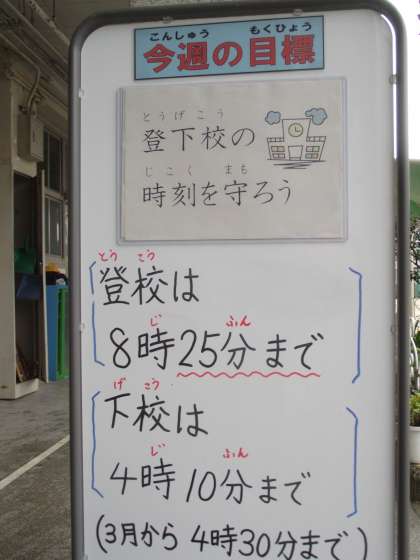 こんしゅう もくひょう
今週の目標
とうげこう
登下校の
じこく まも
時刻を守ろう
とう こう
登校は
じ ふん
8時25分まで
げ こう
下校は
じ ふん
4時10分まで
(3月から 4時30分まで)